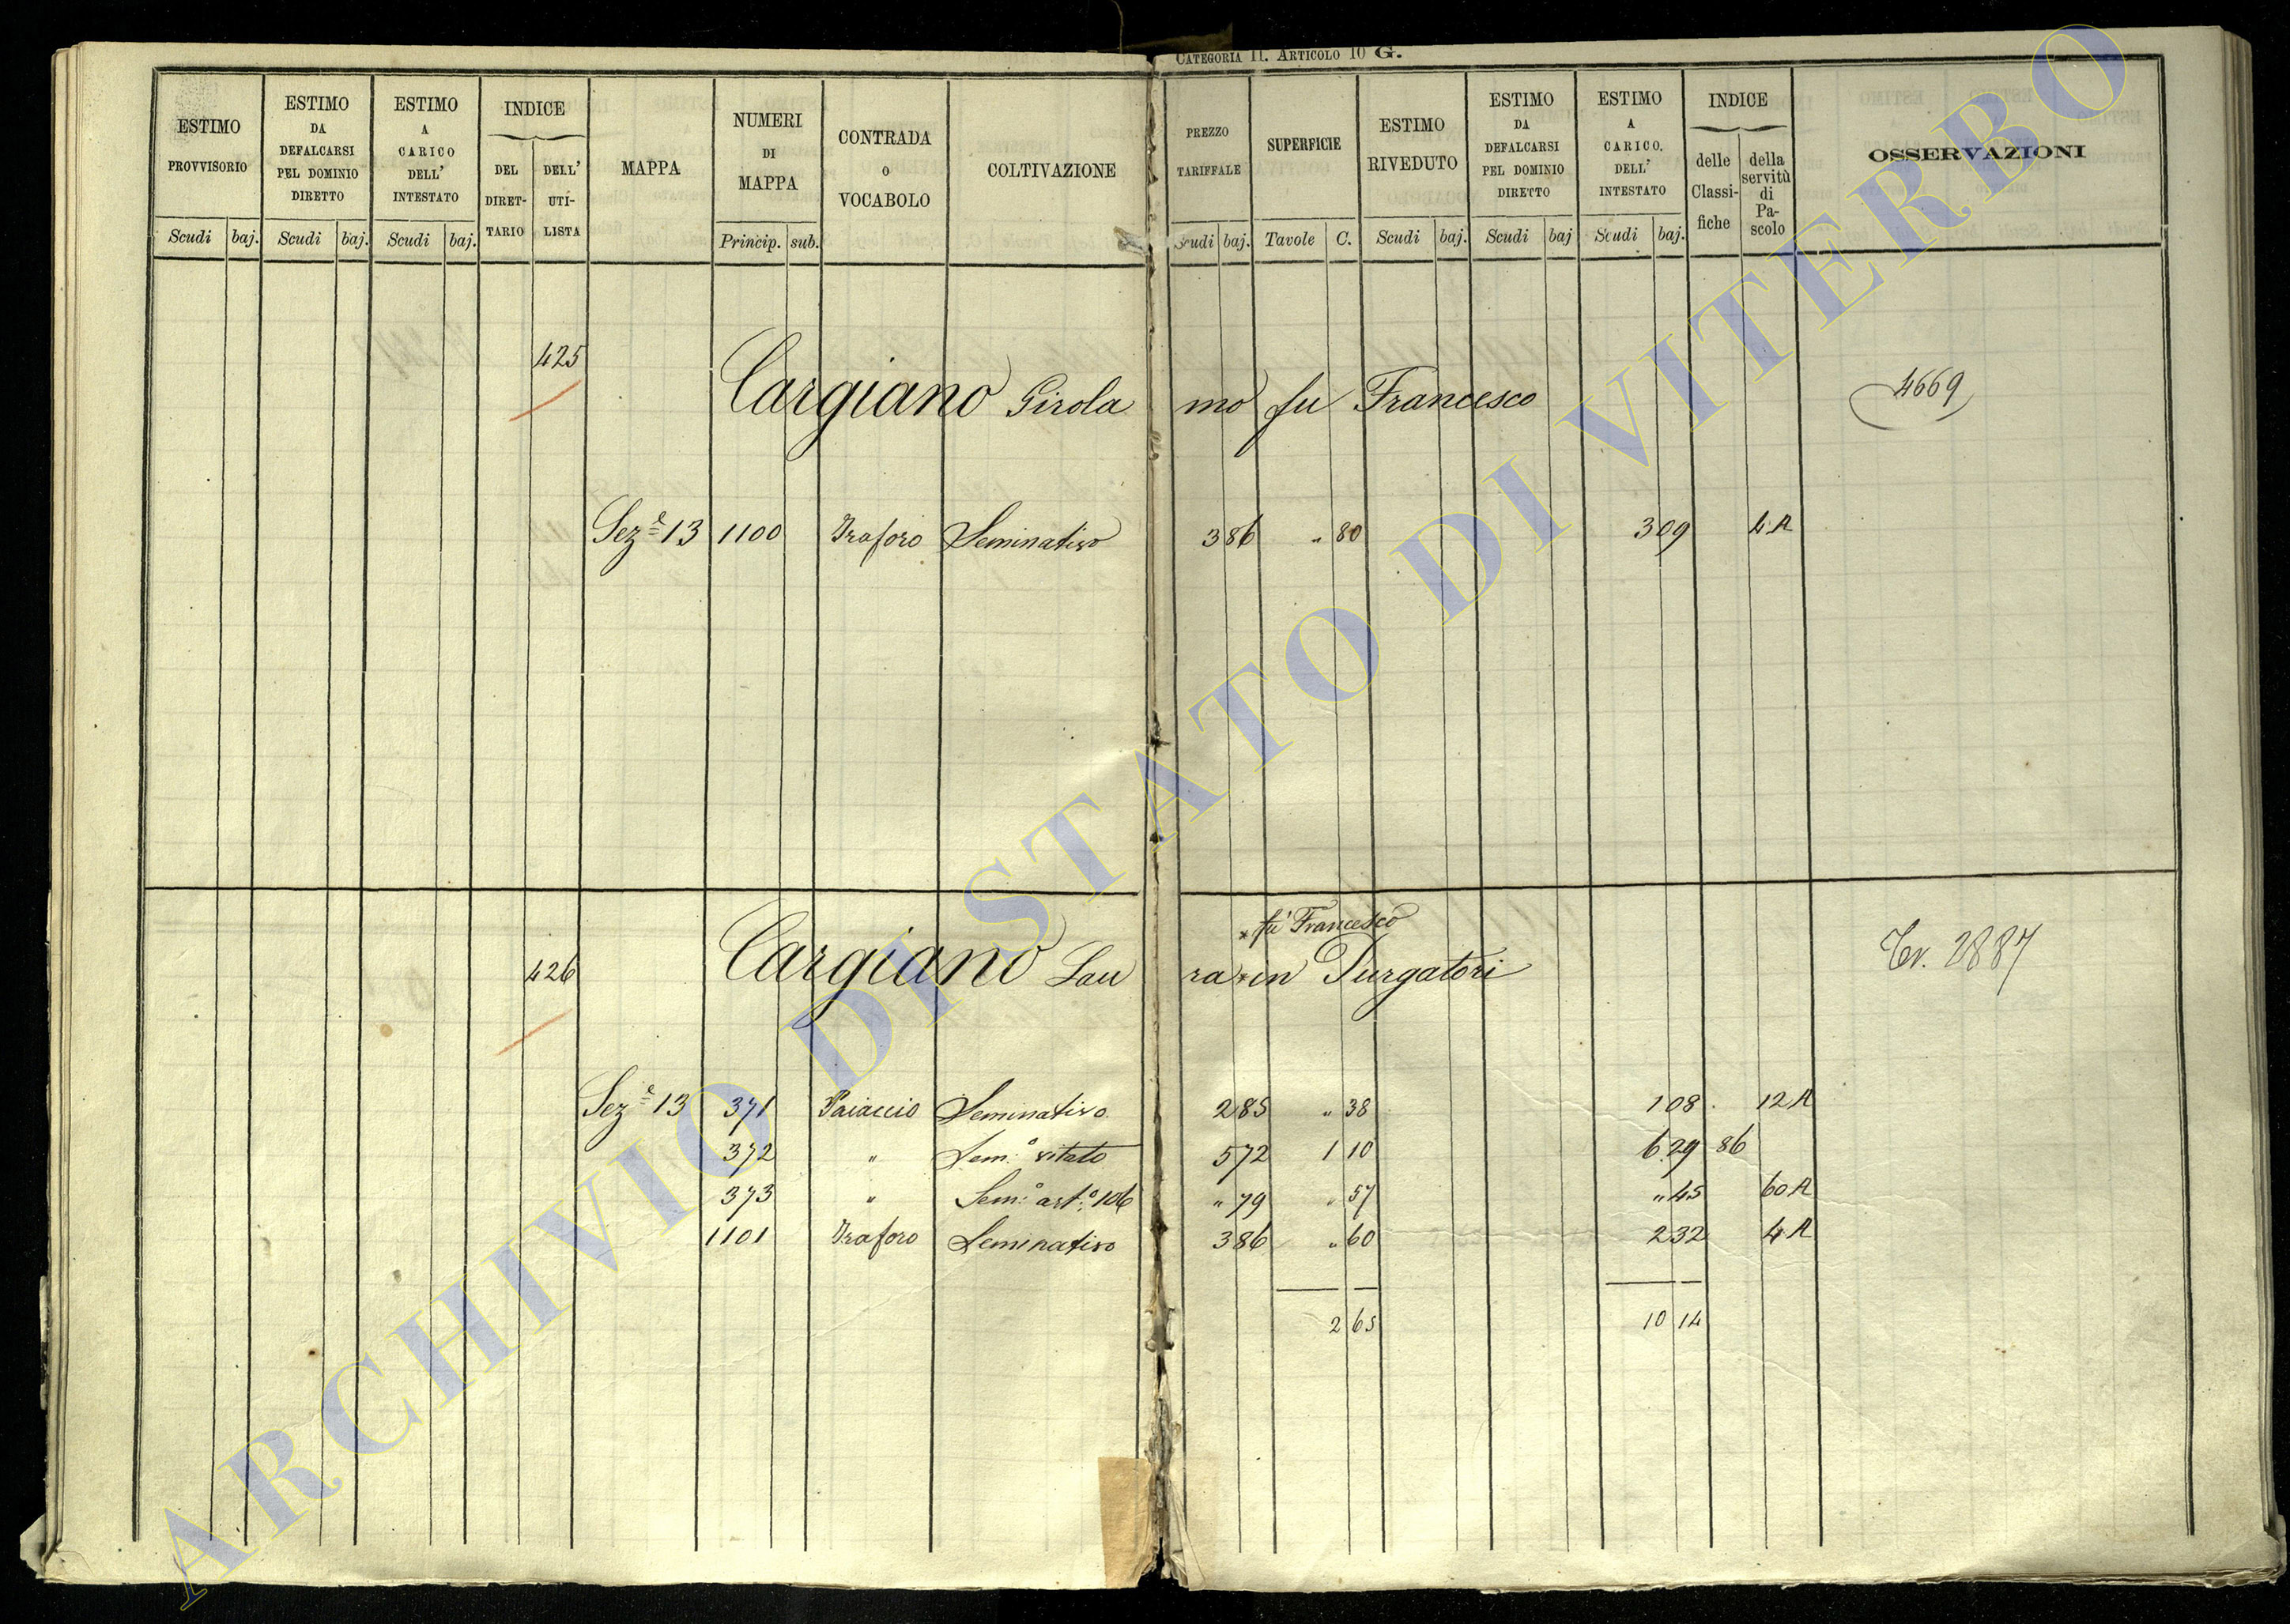 CATEGORIA II. ARTICOLO 10 G.
ESTIMO PROVVISORIO
ESTIMO DA DEFALCARSI PEL DOMINIO DIRETTO
ESTIMO A CARICO DELL' INTESTATO
INDICE
DEL DIRET-TARIO
DELL' UTI-LISTA
MAPPA
NUMERI DI MAPPA
CONTRADA O VOCABOLO
COLTIVAZIONE
PREZZO TARIFFALE
SUPERFICIE
ESTIMO RIVEDUTO
ESTIMO DA DEFALCARSI PEL DOMINIO DIRETTO
ESTIMO A CARICO. DELL' INTESTATO
INDICE
delle Classi-fiche
della servitù di Pa-scolo
OSSERVAZIONI
Scudi baj. Scudi baj. Scudi baj. Princip. sub. Scudi baj. Tavole C. Scudi baj. Scudi baj Scudi baj.
425 Cargiano Girolamo fu Francesco 4669
Sez.e 13 1100 Traforo Seminativo 3 86 " 80 3 09 4 A
* fu Francesco
426 Cargiano Laura * in Purgatori Tr. 2887
Sez.e 13 371 Paiaccio Seminativo 2 85 " 38 1 08 . 12 A
372 " Sem.o vitato 5 72 1 10 6 29 86
373 " Sem.o art.o 106 " 79 " 57 " 45 60 A
1101 Traforo Seminativo 3 86 " 60 2 32 4 A
2 65 10 14
ARCHIVIO DI STATO DI VITERBO